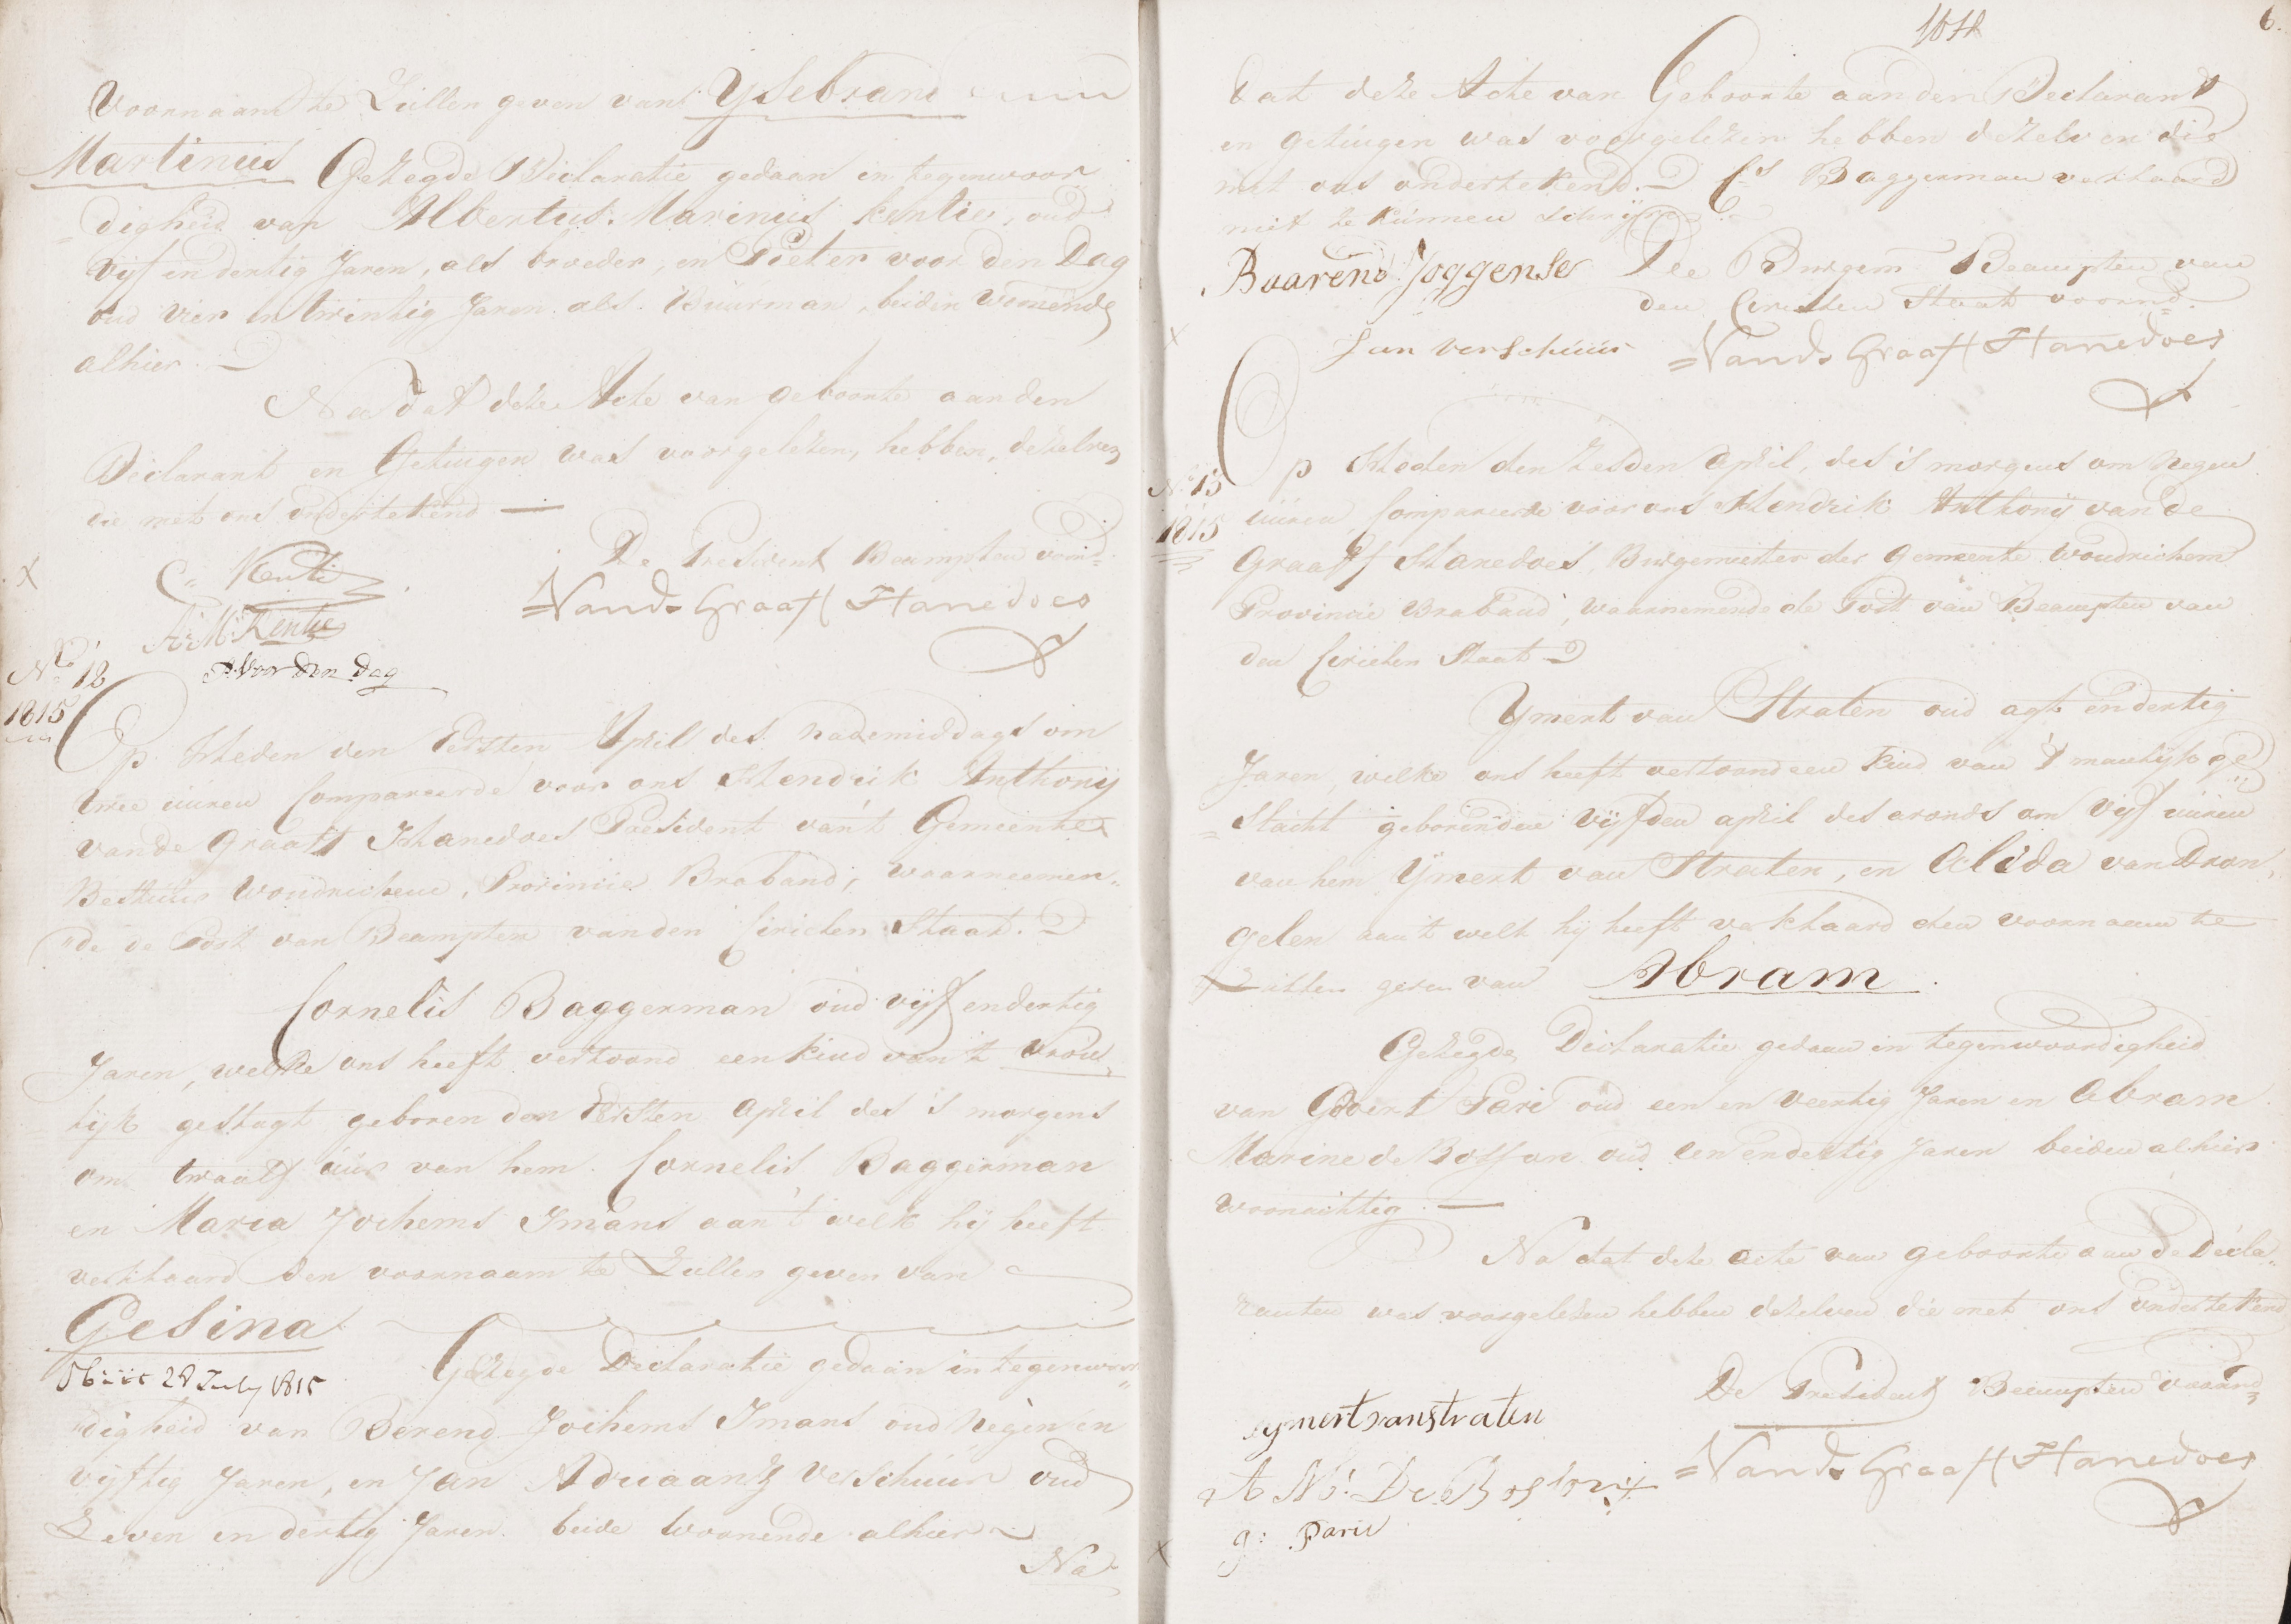 voornaam te Zullen geven van Ysebrand
Martinus Gezegde Declaratie gedaan in tegenwoor
digheid van Albertus Marinus kentie, oud
vijf en dertig Jaren, als broeder, en Pieter voor den Dag
oud vier en twintig Jaren als Buurman, beiden wonende
alhier.
Na dat deze Acte van geboorte aan den
Declarant en Getuigen was voorgelezen, hebben, dezelven
die met ons ondertekend
De President Beampten voornd
C. Kentie
VandGraaff Hanedoes
A: M: Kentie
P Voor den dag
No 12
1815
Op Heden den Eersten April des nademiddags om
twee uuren Compareerde voor ons Hendrik Anthonij
vande Graaff Hanedoes President van't Gemeente
Bestuur Woudrichem, Provincie Braband, waarneemen„
„de de Post van Beampten vanden Civielen Staat.
Cornelis Baggerman oud vijf en dertig
Jaren, welke ons heeft vertoond een kind van 't vrou„
lijk geslagt geboren den Eersten April des 's morgens
om twaalf uur van hem Cornelis Baggerman
en Maria Jochems Imans aan 't welk hij heeft
verklaard den voornaam te Zullen geven van
Gesina
Obiit 28 July 1815
Gezegde Declaratie gedaan in tegenwoor„
„digheid van Berend Jochems Imans oud Negen en
vijftig Jaren, en Jan Adriaanz Verschuur oud
Zeven en dertig Jaren beide woonende alhier
Na
6.
dat deze Acte van Geboorte aan den Declarant
en getuigen was voorgelezen hebben dezelven die
met ons ondertekend. Cs Baggerman verklaard
niet te kunnen schrijven
Baarend Joggense
De Burgem Beampten van
den Civielen Staat voornd.
Jan Verschuur
VandGraaff Hanedoes
No 13
1815
Op Heden den Zesden April, des 's morgens om Negen
uuren Compareerde voor ons Hendrik Anthonij vande
Graaff Hanedoes, Burgemeester der Gemeente Woudrichem
Provincie Braband, waarnemende de Post van Beampten van
den Civielen Staat
Yment van Straten oud agt en dertig
Jaren, welke ons heeft vertoond een kind van 't manlijk ge
slacht geboren den vijfden april des avonds om vijf uuren
van hem Yment van Straten, en Alida van Dron„
gelen aan 't welk hij heeft verklaard den voornaam te
Zullen geven van Abram.
Gezegde Declaratie gedaan in tegenwoordigheid
van Govert Parie oud een en veertig Jaren en Abram
Marine de Bosson oud een en dertig Jaren beiden alhier
woonachtig.
Na dat deze acte van geboorte aan de Decla„
ranten was voorgelezen hebben dezelven die met ons ondertekend
De President Beampten voornd
yment van straten
VandGraaff Hanedoes
A M: De Bosson
g: Parie